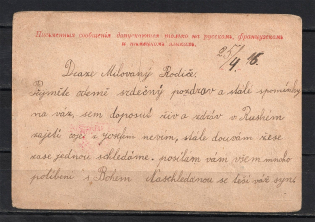 Письменныя сообщенія допускаются только на русскомъ, французскомъ
и нѣмецкомъ языкахъ.
25/4 16.
Draze Milovaný Rodiče.
Příjměte odemě srdečný pozdrav a stále spomínky
na vas, sem doposut živ a zdráv v Ruském
zajetí co je z Jozkem nevim, stale doufám že se
zase jednou schledáme. posilám vám všem mnoho
políbení s Bohem Naschledanou se těší váš syn